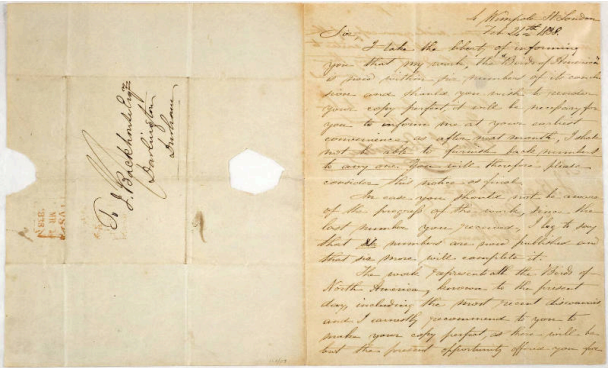 To J. Backhouse Esqre
Darlington
Durham
4 Wimpole St London
Feb. 24th 1838.
Sir,
I take the liberty of informing
you that my work, the "Birds of America"
is now within six numbers of its conclu-
sion and should you wish to render
your copy perfect it will be necessary for
you to inform me at your earliest
convenience, as after next month, I shall
not be able to furnish back numbers
to any one. You will therefore please
consider this notice as final.
In case you should not be aware
of the progress of the work, since the
last number you received, I beg to say
that numbers are now published and
that six more will complete it.
The work represents all the Birds of
North America, known to the present
day, including the most recent discoveries
and I earnestly recommend to you to
make your copy perfect, as there will be
but the present opportunity offered you for